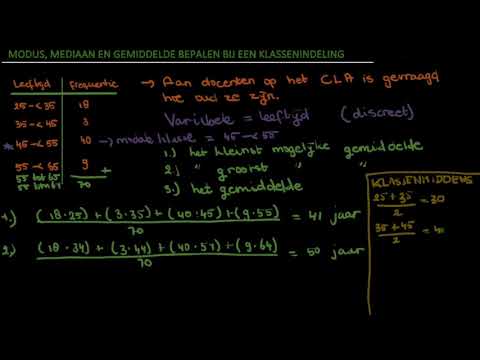 MODUS, MEDIAAN EN GEMIDDELDE BEPALEN BIJ EEN KLASSENINDELING
Leeftijd Frequentie
25-<35 18
35-<45 3
45-<55 40 → modale klasse = 45-<55
55-<65 9 +
55 tot 65
55 t/m 64 70
→ Aan docenten op het CLA is gevraagd
hoe oud ze zijn.
Variabele = leeftijd (discreet)
1.) het kleinst mogelijke gemiddelde
2.) " grootst " "
3.) het gemiddelde
1.) (18·25)+(3·35)+(40·45)+(9·55) / 70 = 41 jaar
2.) (18·34)+(3·44)+(40·54)+(9·64) / 70 = 50 jaar
KLASSENMIDDENS
25+35 / 2 = 30
35+45 / 2 = 40